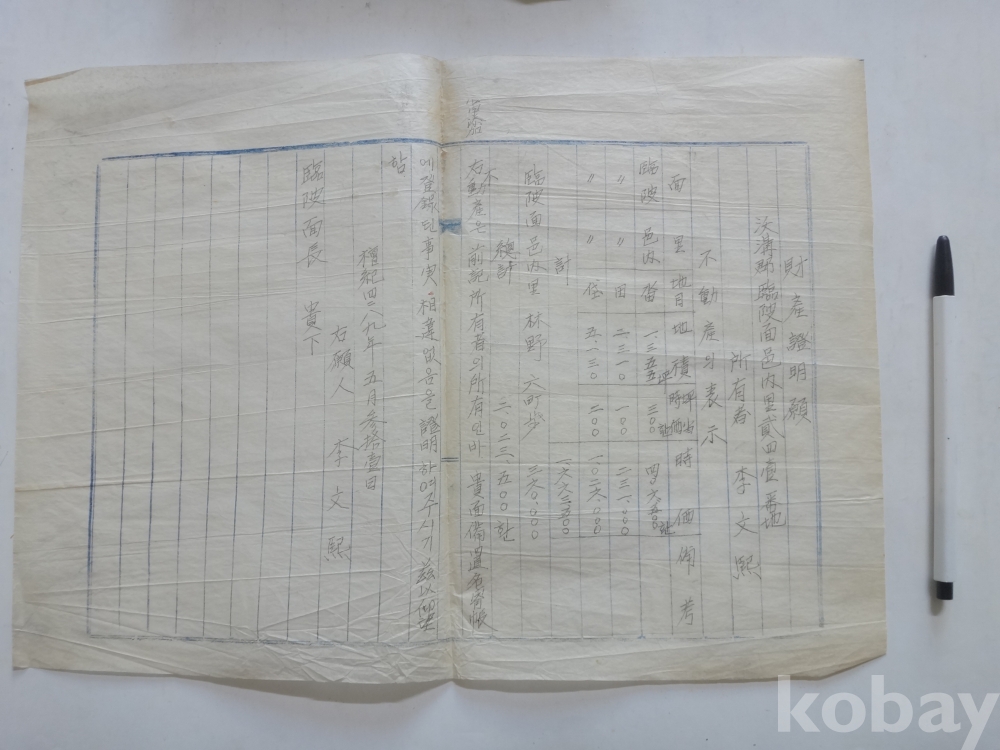 財産證明願
沃溝郡臨陂面邑內里貳四壹番地
所有者 李文熙
不動産의表示
面 里 地目 地積 坪当時価 時価 備考
臨陂 邑內 畓 一三五五坪 三〇〇환 四〇六.五〇〇환
〃 〃 田 二三一〇 一〇〇 二三一.〇〇〇
〃 〃 垈 五.一三〇 二〇〇 一〇二六.〇〇〇
計 一.六六三.五〇〇
臨陂面邑內里 林野 六町步 三六〇.〇〇〇
總計 二.〇二三.五〇〇환
右不動産은 前記所有者의所有인바 貴面備置
에登錄된事実 相違없음을 證明하여주시기 茲以仰望
함
檀紀四二八九年 五月參拾壹日
右願人 李文熙
臨陂面長 貴下
kobay